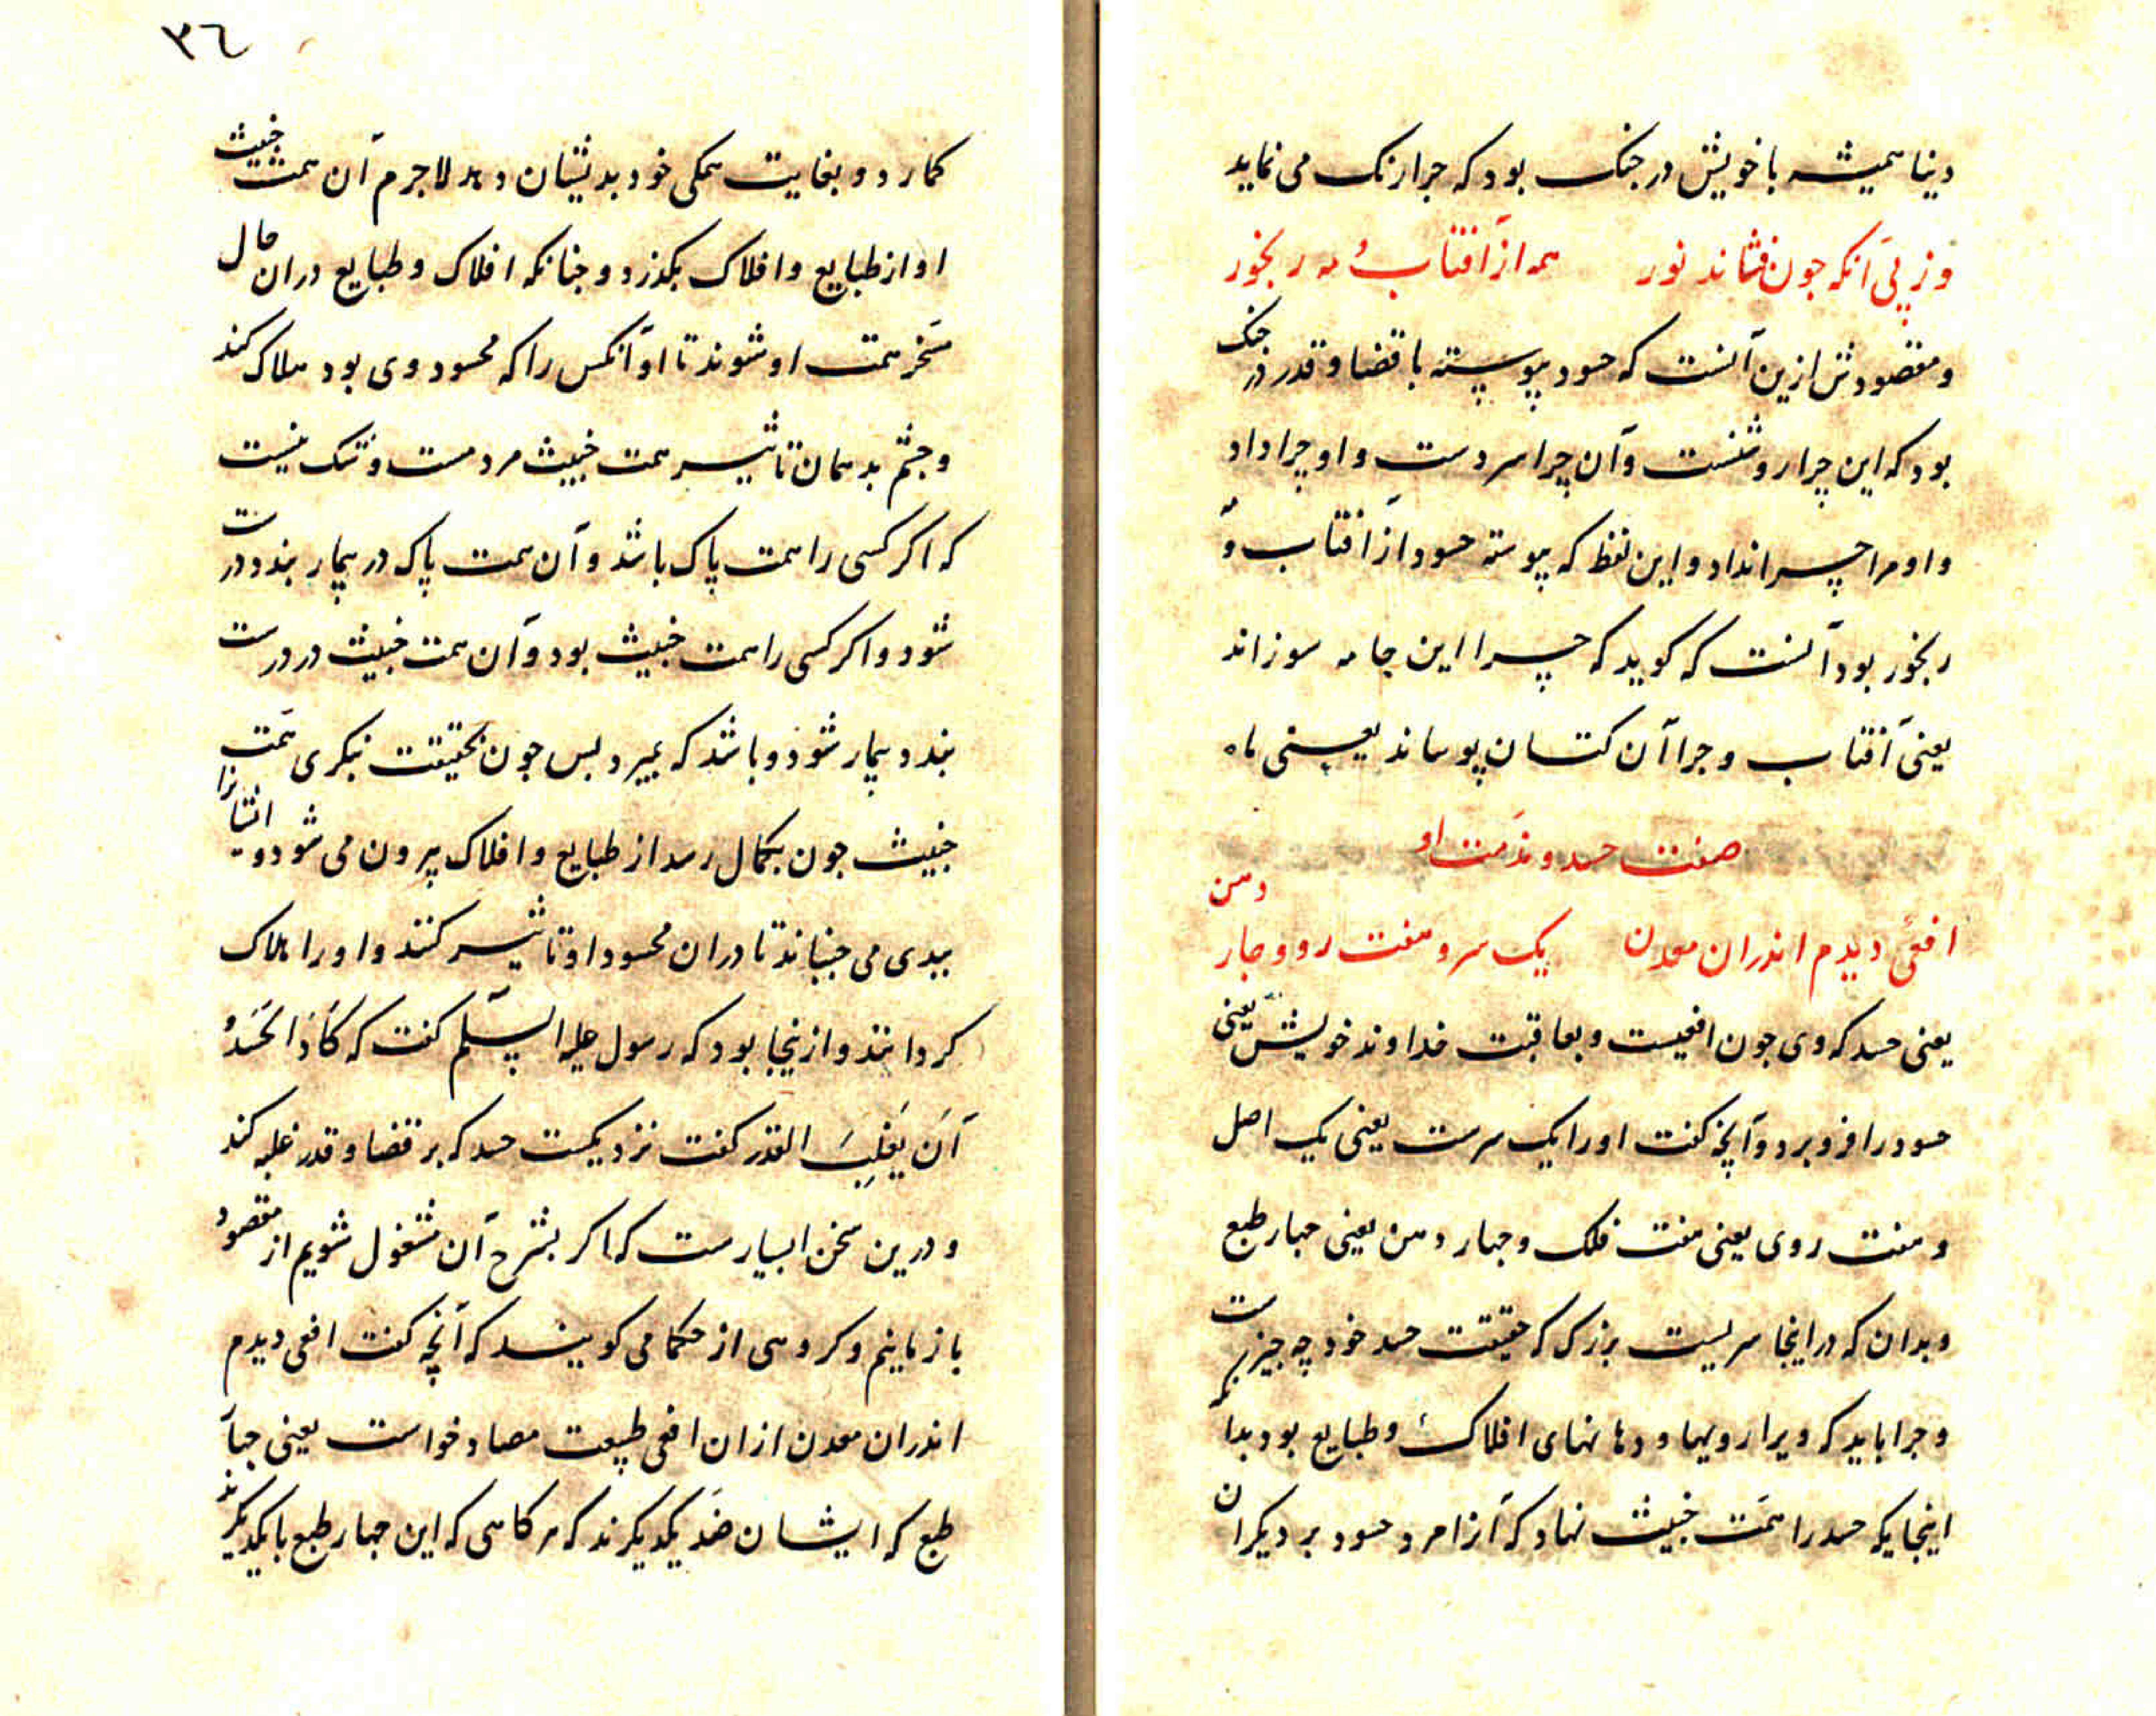 دینا همیشه با خویش در جنک بود که جرا رنک می نماید
وز پی آنکه جون فشاند نور همه از آفتاب و مه رنجور
و مقصودش ازین آنست که حسود پیوسته با قضا و قدر در جنک
بود که این چرا روشنست و آن چرا سردست و او چرا داد
و او مرا چرا نداد و این لفظ که پیوسته حسود از آفتاب و مه
رنجور بود آنست که کوید که چرا این جامه سوزاند
یعنی آفتاب و جرا آن کتان پوساند یعنی ماه
صفت حسد و مذمت او
افعی دیدم اندران معدن یک سر و هفت رو و جار دهن
یعنی حسد که وی جون افعیست و بعاقبت خداوند خویش یعنی
حسود را فرو برد و آنچه کفت او را یک سرست یعنی یک اصل
و هفت روی یعنی هفت فلک و جهار دهن یعنی جهار طبع
و بدان که در اینجا سریست بزرک که حقیقت حسد خود چه جیزست
و جرا باید که ویرا رویها و دهانهای افلاک و طبایع بود بدانکه
اینجایکه حسد را همت خبیث نهاد که آنرا مرد حسود بر دیکران
٣٦
کمارد و بغایت همکی خود بدیشان دهد لاجرم آن همت خبیث
او از طبایع و افلاک بکذرد و جنانکه افلاک و طبایع دران حال
مسخر همت او شوند تا او آنکس را که محسود وی بود هلاک کند
و جشم بد همان تاثیر همت خبیث مردمست و شک نیست
که اکر کسی را همت پاک باشد و آن همت پاک در بیمار بندد درست
شود و اکر کسی را همت خبیث بود و آن همت خبیث در درست
بندد بیمار شود و باشد که بمیرد بس جون بحقیقت بنکری همت
خبیث جون بکمال رسد از طبایع و افلاک بیرون می شود و ایشانرا
ببدی می جنباند تا دران محسود او تاثیر کنند و او را هلاک
کردانند و ازینجا بود که رسول علیه السلم کفت که کَادَ الحَسَدُ
اَن یَغلِبَ القدر کفت نزدیکست حسد که بر قضا و قدر غلبه کند
و درین سخن بسیارست که اکر بشرح آن مشغول شویم از مقصود
باز مانیم و کروهی از حکما می کویند که آنچه کفت افعی دیدم
اندران معدن ازان افعی طبیعت مضاد خواست یعنی جهار
طبع که ایشان ضد یکدیکرند که هر کاهی که این جهار طبع با یکدیکرند